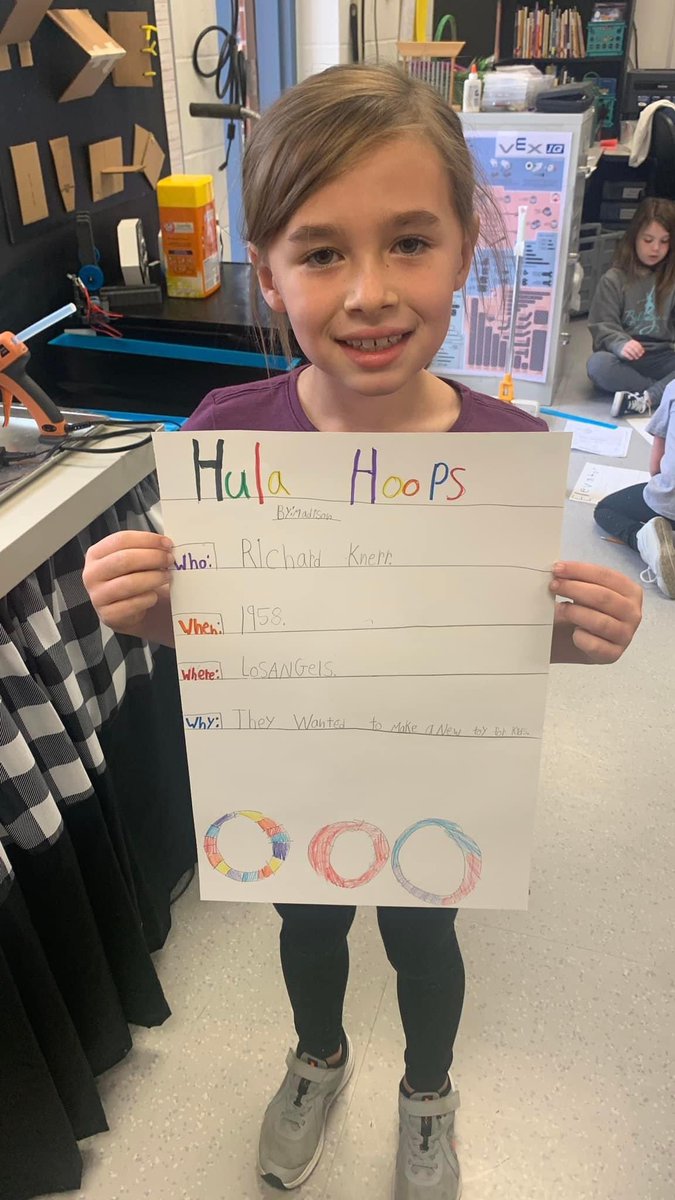 Hula Hoops
BY:Madison
Who: Richard Knerr.
When: 1958.
Where: LOSANGels.
Why: They Wanted to Make a New toy for Kids.
VEX IQ